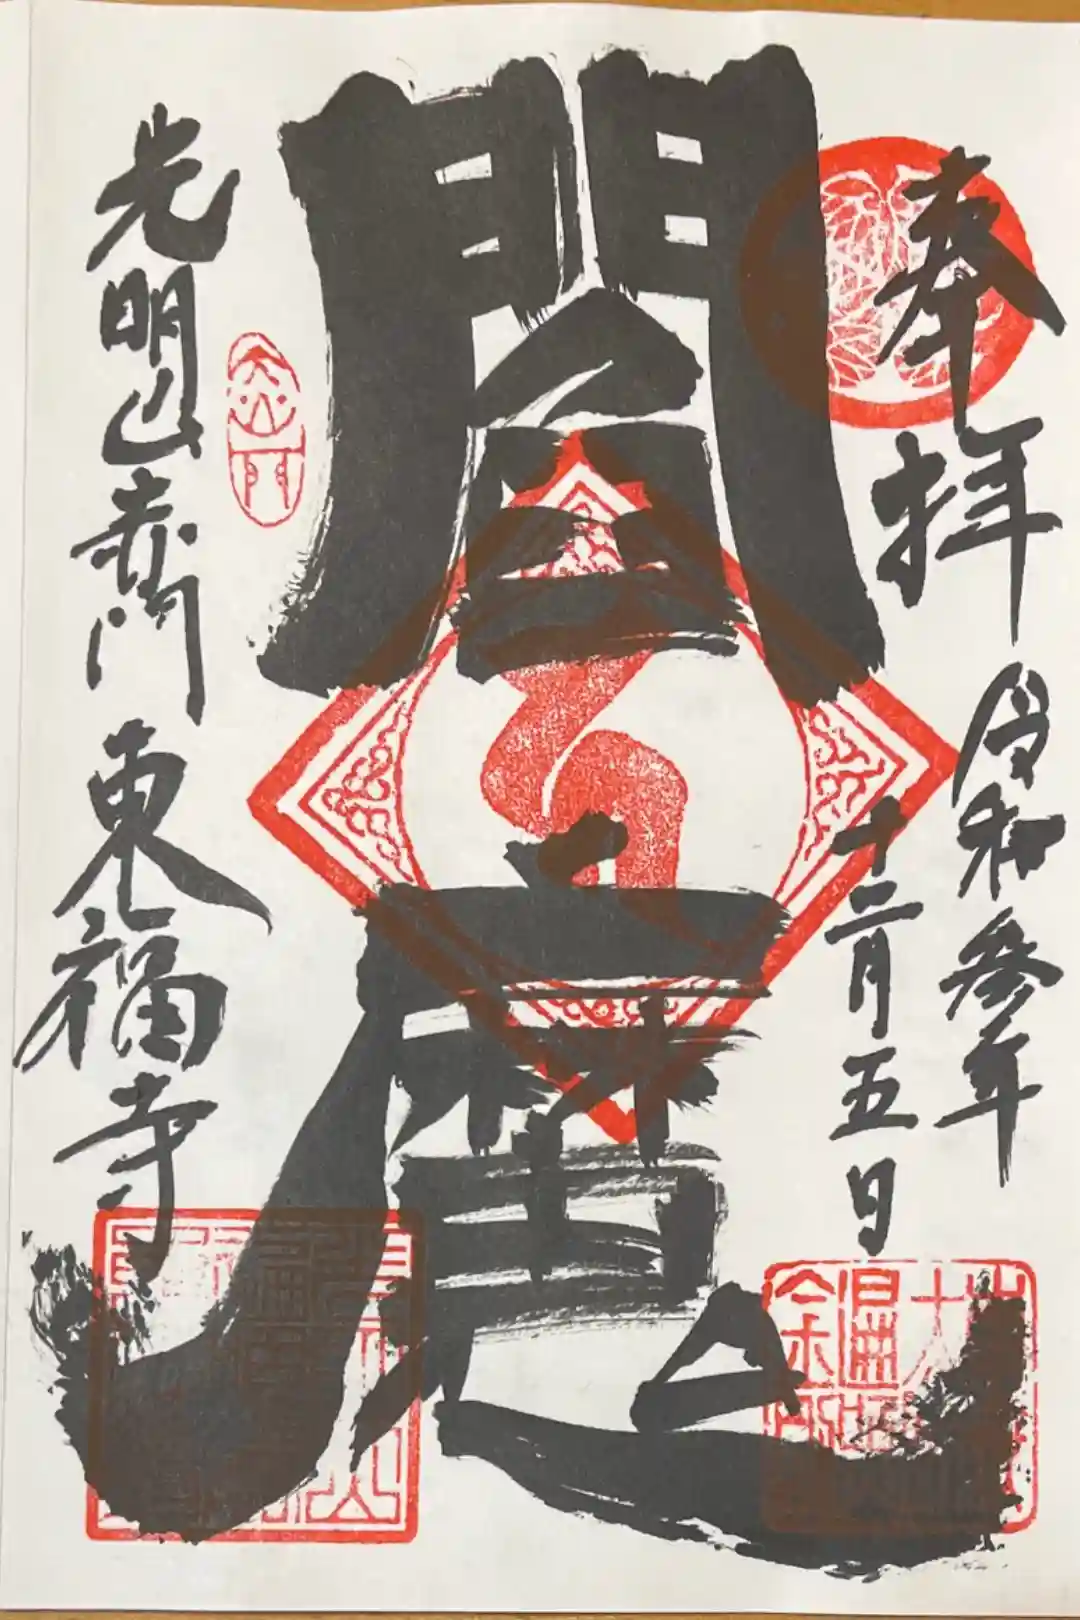 奉拝
令和参年
十二月五日
閻魔
赤門
光明山赤門 東福寺